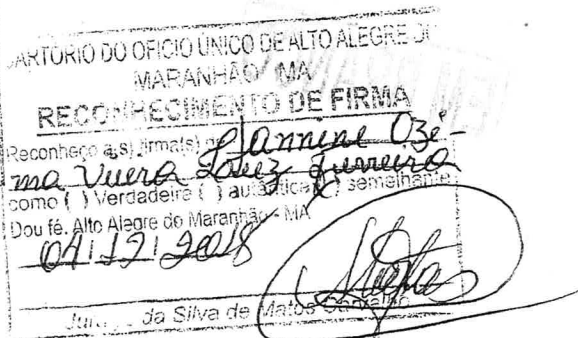 CARTÓRIO DO OFÍCIO ÚNICO DE ALTO ALEGRE DO
MARANHÃO MA
RECONHECIMENTO DE FIRMA
Reconheço a(s) firma(s) de Jannine Ozé-
ma Vieira Ferreira
como ( ) Verdadeira ( ) autêntica (X) semelhante
Dou fé. Alto Alegre do Maranhão - MA
04/12/2018
da Silva de Matos Carvalho